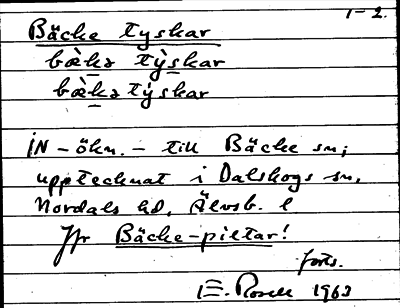 1-2.
Bäcke tyskar
bæ̀kə tỳskar
bæ̀kə týskar
IN-ökn. - till Bäcke sn;
upptecknat i Dalskogs sn,
Nordals hd, Älvsb. l
Jfr Bäcke-piltar!
forts.
E. Rosell 1963